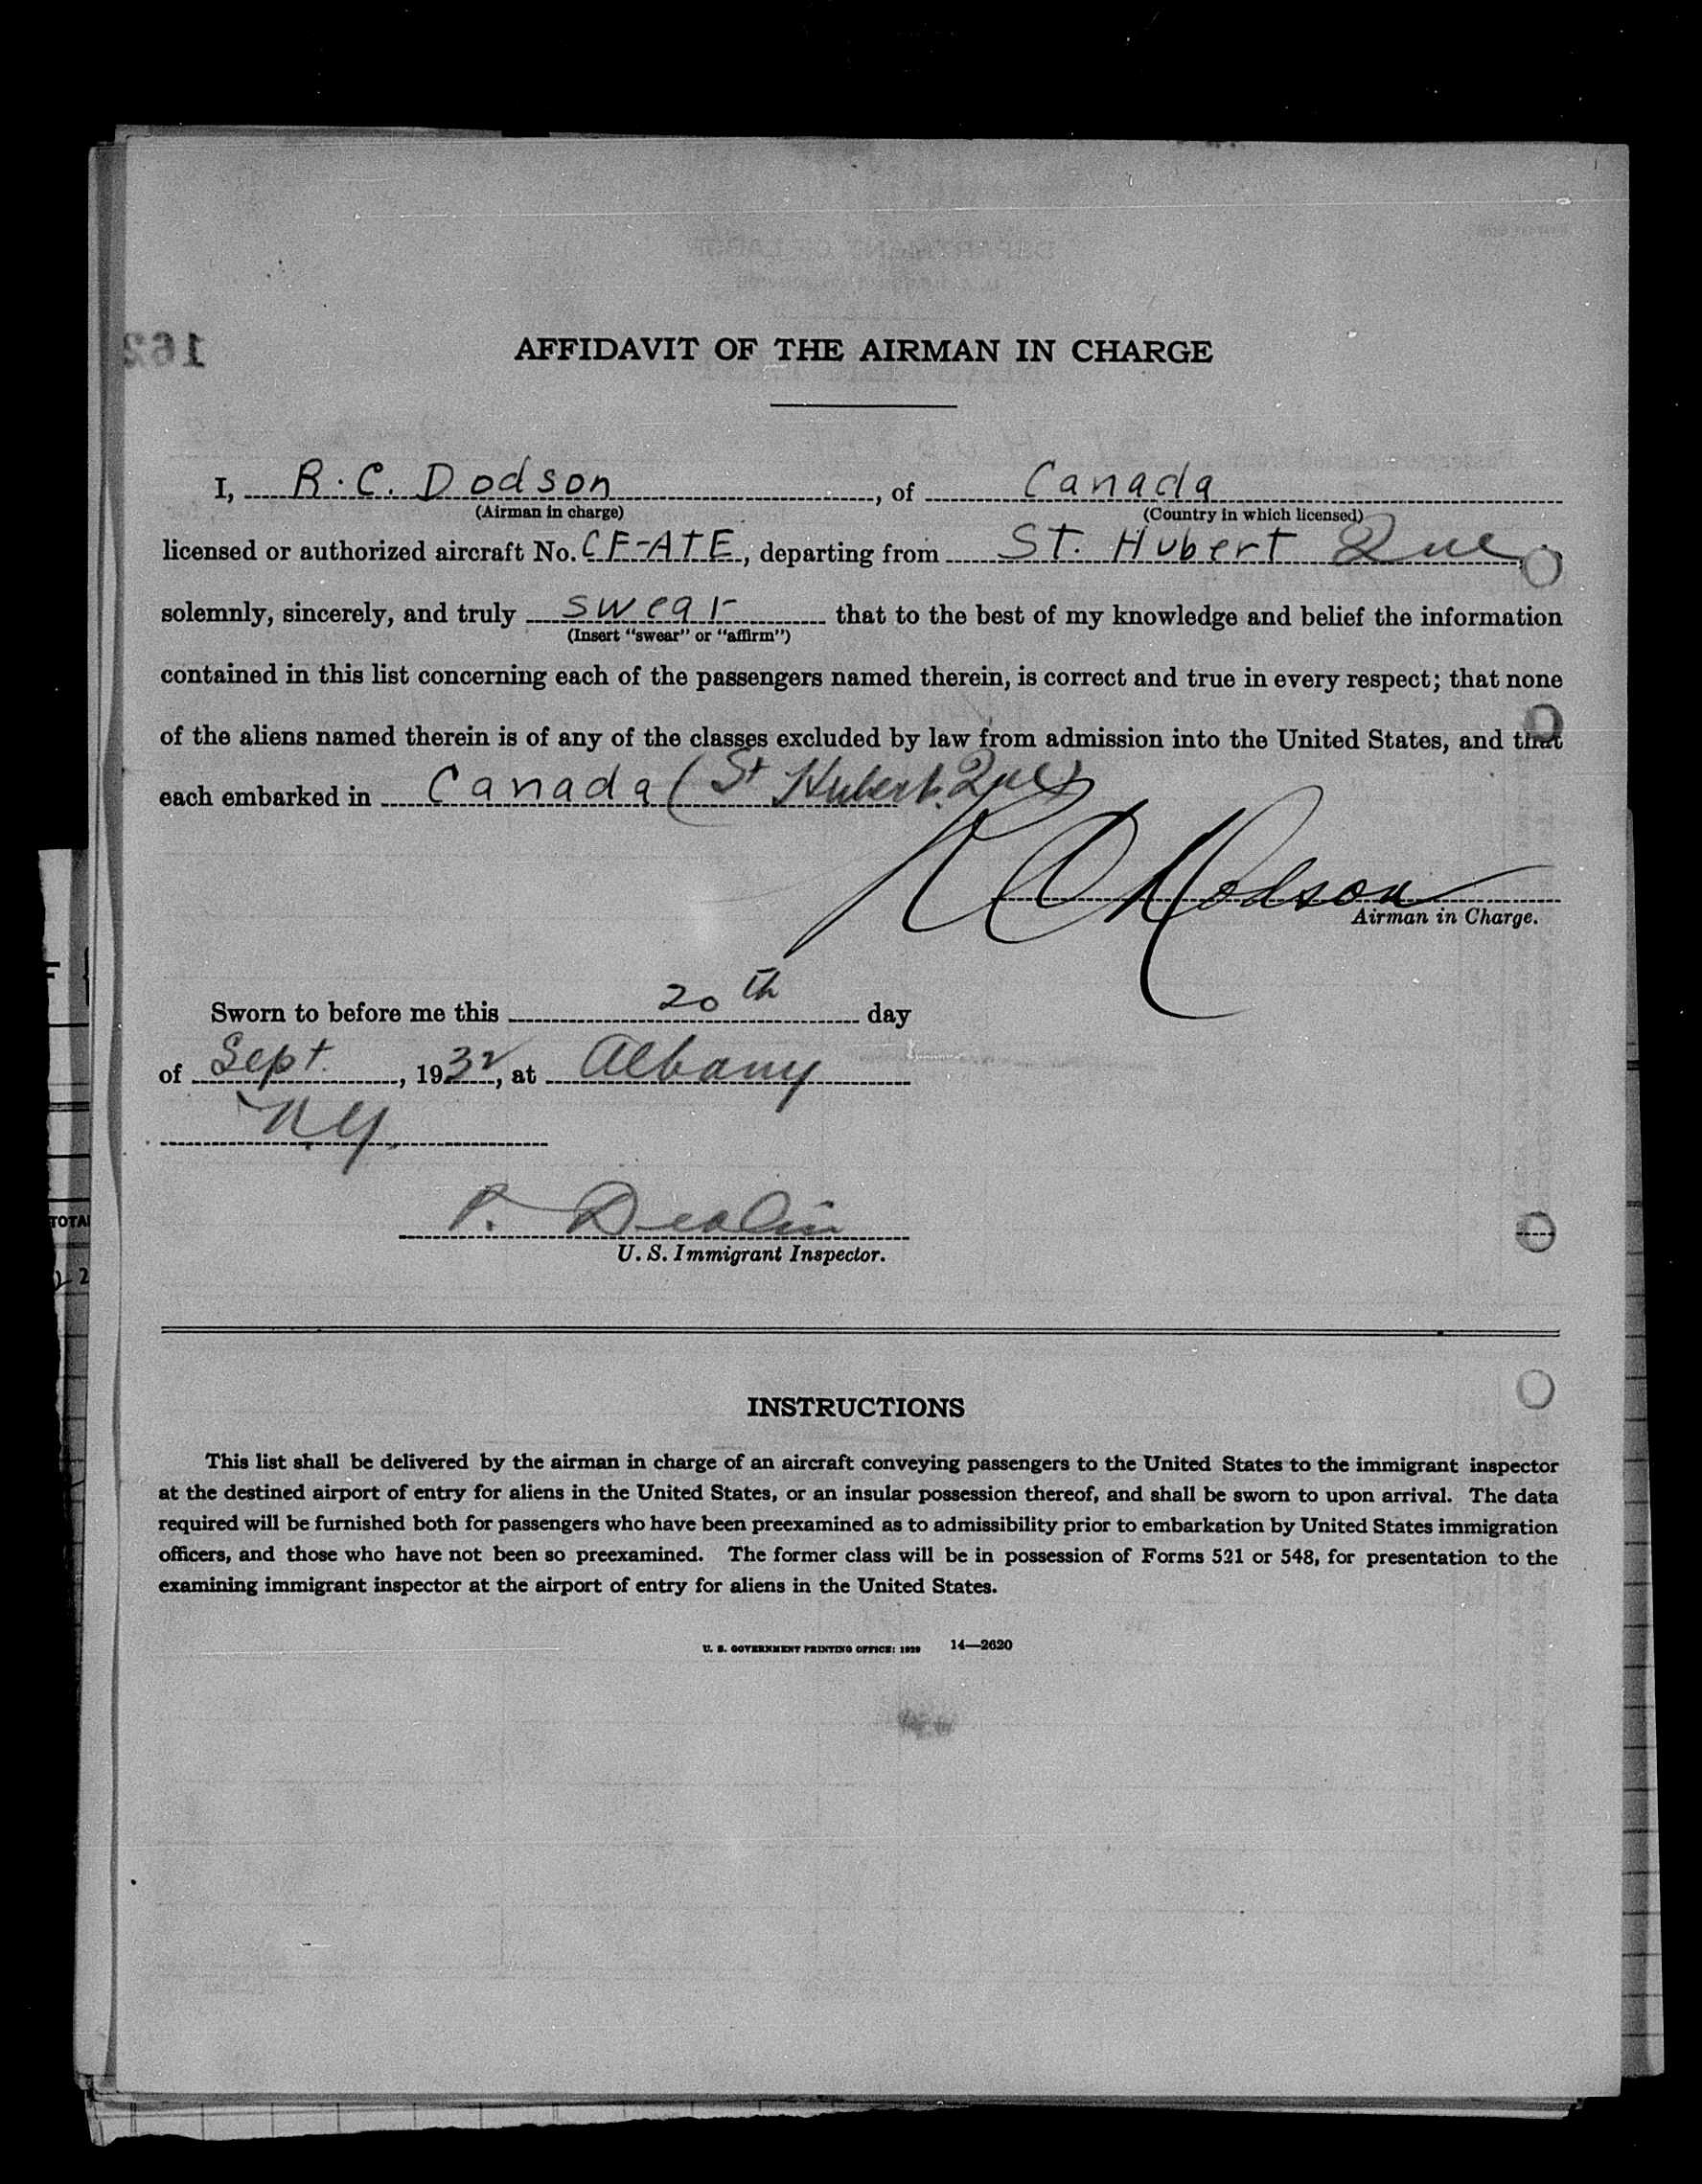 AFFIDAVIT OF THE AIRMAN IN CHARGE
I, R. C. Dodson, of Canada
(Airman in charge) (Country in which licensed)
licensed or authorized aircraft No. CF-ATE, departing from St. Hubert Que,
solemnly, sincerely, and truly swear that to the best of my knowledge and belief the information
(Insert "swear" or "affirm")
contained in this list concerning each of the passengers named therein, is correct and true in every respect; that none
of the aliens named therein is of any of the classes excluded by law from admission into the United States, and that
each embarked in Canada (St Hubert. Que)
R C Dodson
Airman in Charge.
Sworn to before me this 20th day
of Sept., 1932, at Albany
N.Y.
P.
U. S. Immigrant Inspector.
INSTRUCTIONS
This list shall be delivered by the airman in charge of an aircraft conveying passengers to the United States to the immigrant inspector
at the destined airport of entry for aliens in the United States, or an insular possession thereof, and shall be sworn to upon arrival. The data
required will be furnished both for passengers who have been preexamined as to admissibility prior to embarkation by United States immigration
officers, and those who have not been so preexamined. The former class will be in possession of Forms 521 or 548, for presentation to the
examining immigrant inspector at the airport of entry for aliens in the United States.
U. S. GOVERNMENT PRINTING OFFICE: 1929 14—2620